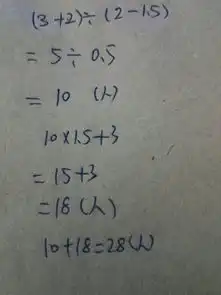 (3+2)÷(2-1.5)
=5÷0.5
=10 (人)
10×1.5+3
=15+3
=18(人)
10+18=28(人)